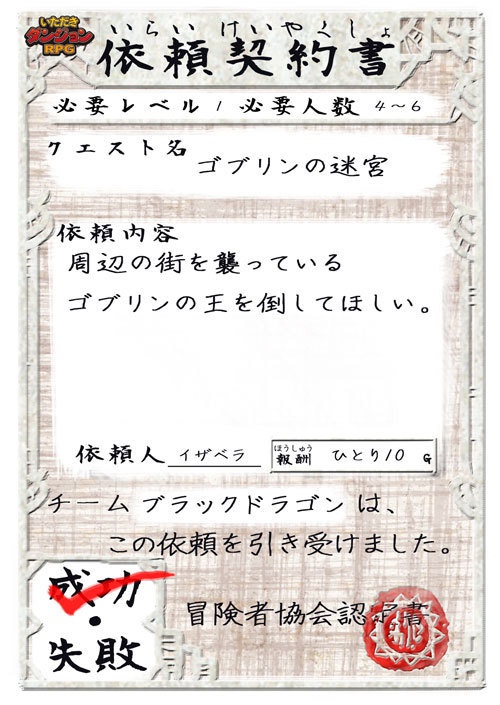 いただき
ダンジョン
RPG
いらい けいやくしょ
依頼契約書
必要レベル 1 必要人数 4～6
クエスト名
ゴブリンの迷宮
依頼内容
周辺の街を襲っている
ゴブリンの王を倒してほしい。
依頼人 イザベラ
ほうしゅう
報酬 ひとり10 G
チーム ブラックドラゴン は、
この依頼を引き受けました。
成功
・
失敗
冒険者協会認定書